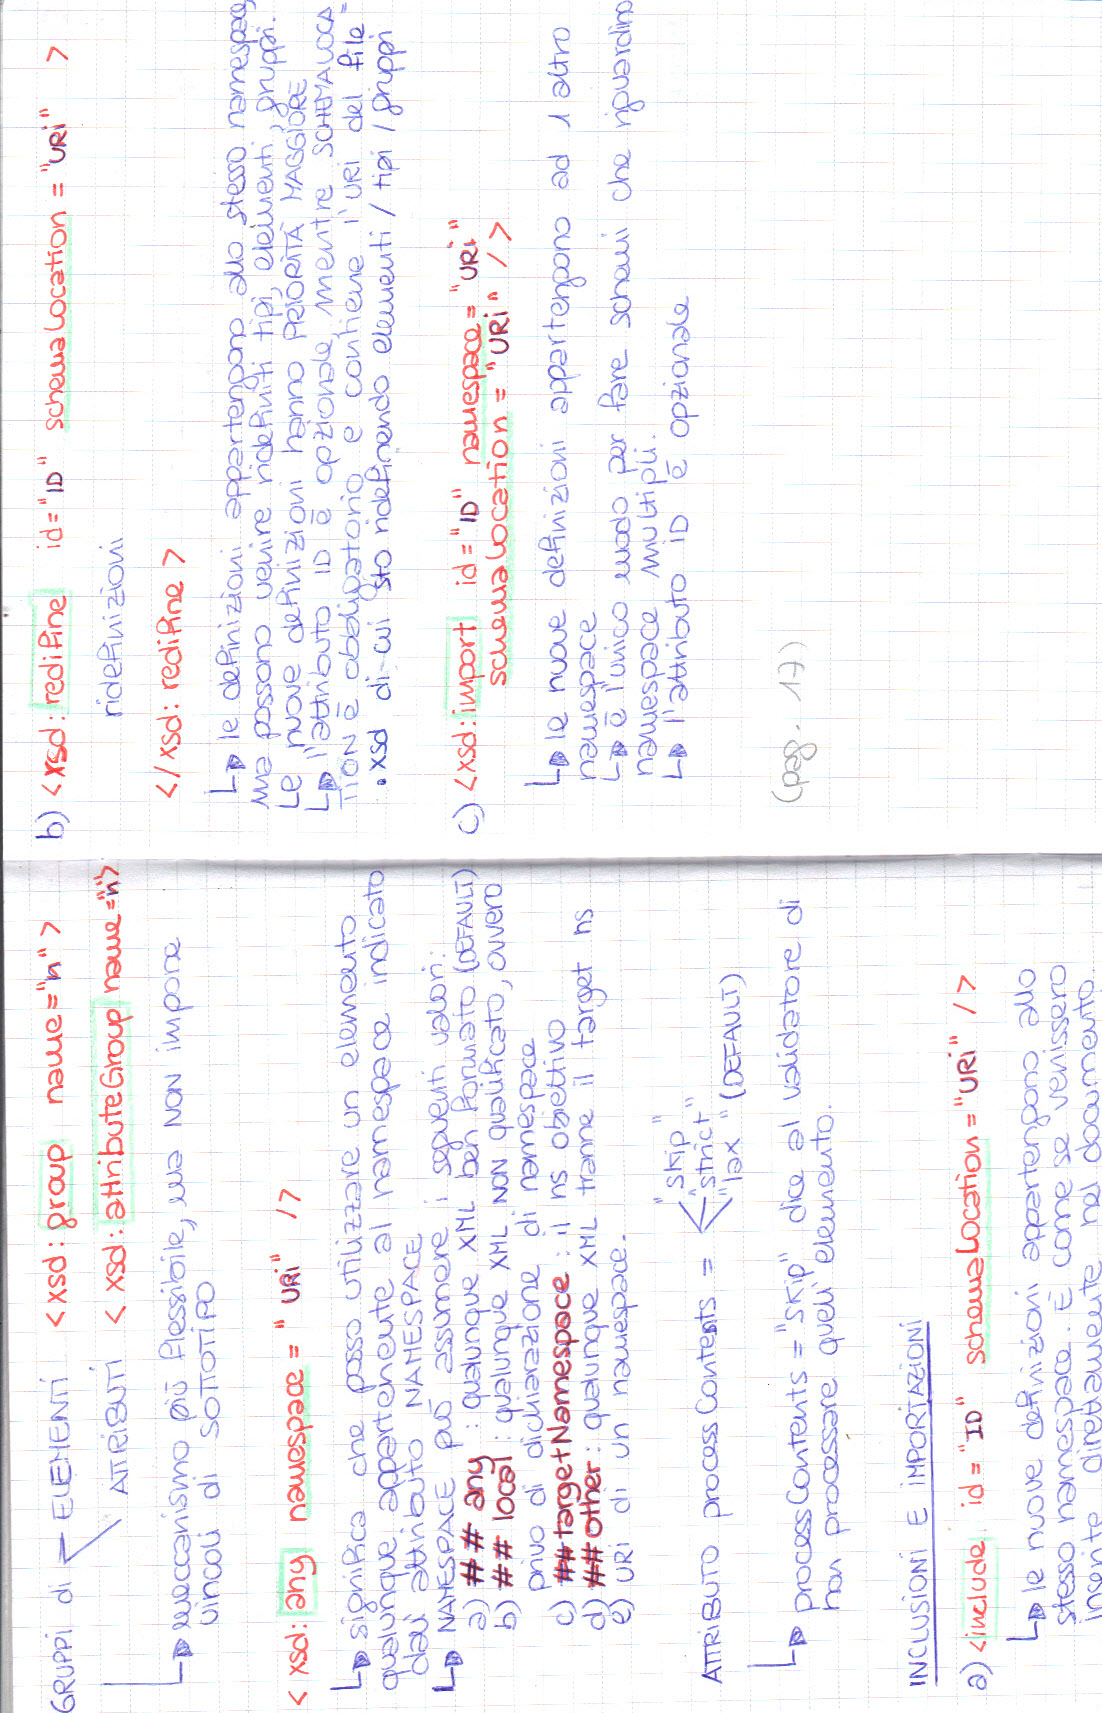 GRUPPI di ELEMENTI <xsd:group name="n">
ATTRIBUTI <xsd:attributeGroup name="n">
meccanismo più flessibile, ma NON impone
vincoli di SOTTOTIPO
<xsd:any namespace="URi" />
significa che posso utilizzare un elemento
qualunque appartenente al namespace indicato
dall'attributo NAMESPACE
NAMESPACE può assumere i seguenti valori:
a) ##any : qualunque XML ben formato (DEFAULT)
b) ##local : qualunque XML NON qualificato, ovvero
privo di dichiarazione di namespace
c) ##targetNamespace : il ns obiettivo
d) ##other : qualunque XML tranne il target ns
e) URi di un namespace.
ATTRIBUTO processContents =
"skip"
"strict"
"lax" (DEFAULT)
processContents="skip" dice al validatore di
non processare quell'elemento.
INCLUSIONI E IMPORTAZIONI
a) <include id="ID" schemaLocation="URi" />
le nuove definizioni appartengono allo
stesso namespace. È come se venissero
inserite direttamente nel documento.
b) <xsd:redifine id="ID" schemaLocation="URi" >
ridefinizioni
</xsd:redifine>
le definizioni appartengono allo stesso namespace,
ma possono venire ridefiniti tipi, elementi, gruppi.
Le nuove definizioni hanno PRIORITÀ MAGGIORE
l'attributo ID è opzionale, mentre SCHEMALOCA=
TION è obbligatorio e contiene l'URi del file
.xsd di cui sto ridefinendo elementi/tipi/gruppi
c) <xsd:import id="ID" namespace="URi"
schemaLocation="URi" />
le nuove definizioni appartengono ad 1 altro
namespace
è l'unico modo per fare schemi che riguardino
namespace multipli.
l'attributo ID è opzionale
(pag. 17)